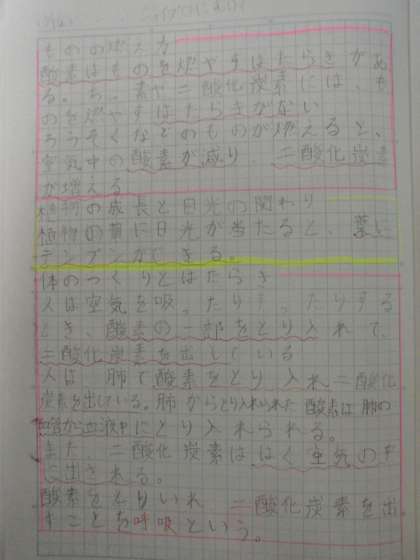 ものの燃え方
酸素はものを燃やすはたらきがあ
る。ちっ素や二酸化炭素には、も
のを燃やすはたらきがない
ろうそくなどのものが燃えると、
空気中の酸素が減り、二酸化炭素
が増える
植物の成長と日光の関わり
植物の葉に日光が当たると、葉に
デンプンができる。
体のつくりとはたらき
人は空気を吸ったりはったりする
とき、酸素の一部をとり入れて、
二酸化炭素を出している
人は、肺で酸素をとり入れ二酸化
炭素を出している。肺からとり入れられた酸素は肺の
血管から血液中にとり入れられる。
また、二酸化炭素ははく空気の中
に出される。
酸素をとりいれ、二酸化炭素を出
すことを呼吸という。